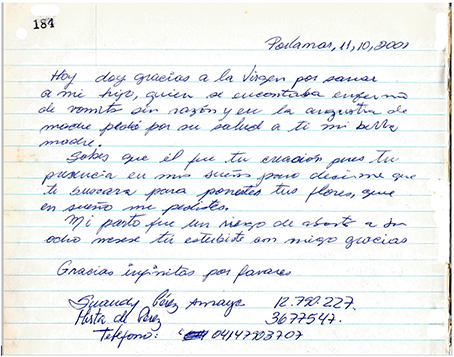 184
Porlamar, 11, 10, 2001
Hoy doy gracias a la Virgen por sanar
a mi hijo, quien se encontaba enfermo
de vomito sin razón y en la angustia de
madre pedió por su salud a ti mi bella
madre.
Sabes que él fue tu creación pues tu
presencia en mis sueños para decirme que
te buscara para ponetes tus flores, que
en sueño me pedistes.
Mi parto fue un riesgo de aborto a los
ocho meses tu estubiste con migo gracias
Gracias infinitas por favares
Pérez Amaya 12.750.227.
de Pérez 3677547.
Telefono: 04147903707